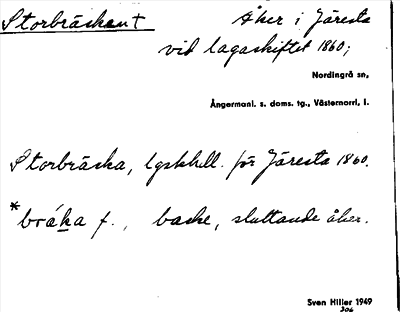 Storbräskan † Åker i Järesta
vid lagaskiftet 1860;
Nordingrå sn,
Ångermanl. s. doms. tg., Västernorrl. l.
Storbräska, lgskhll. för Järesta 1860.
*bráka f., backe, sluttande åker.
Sven Hiller 1949
306